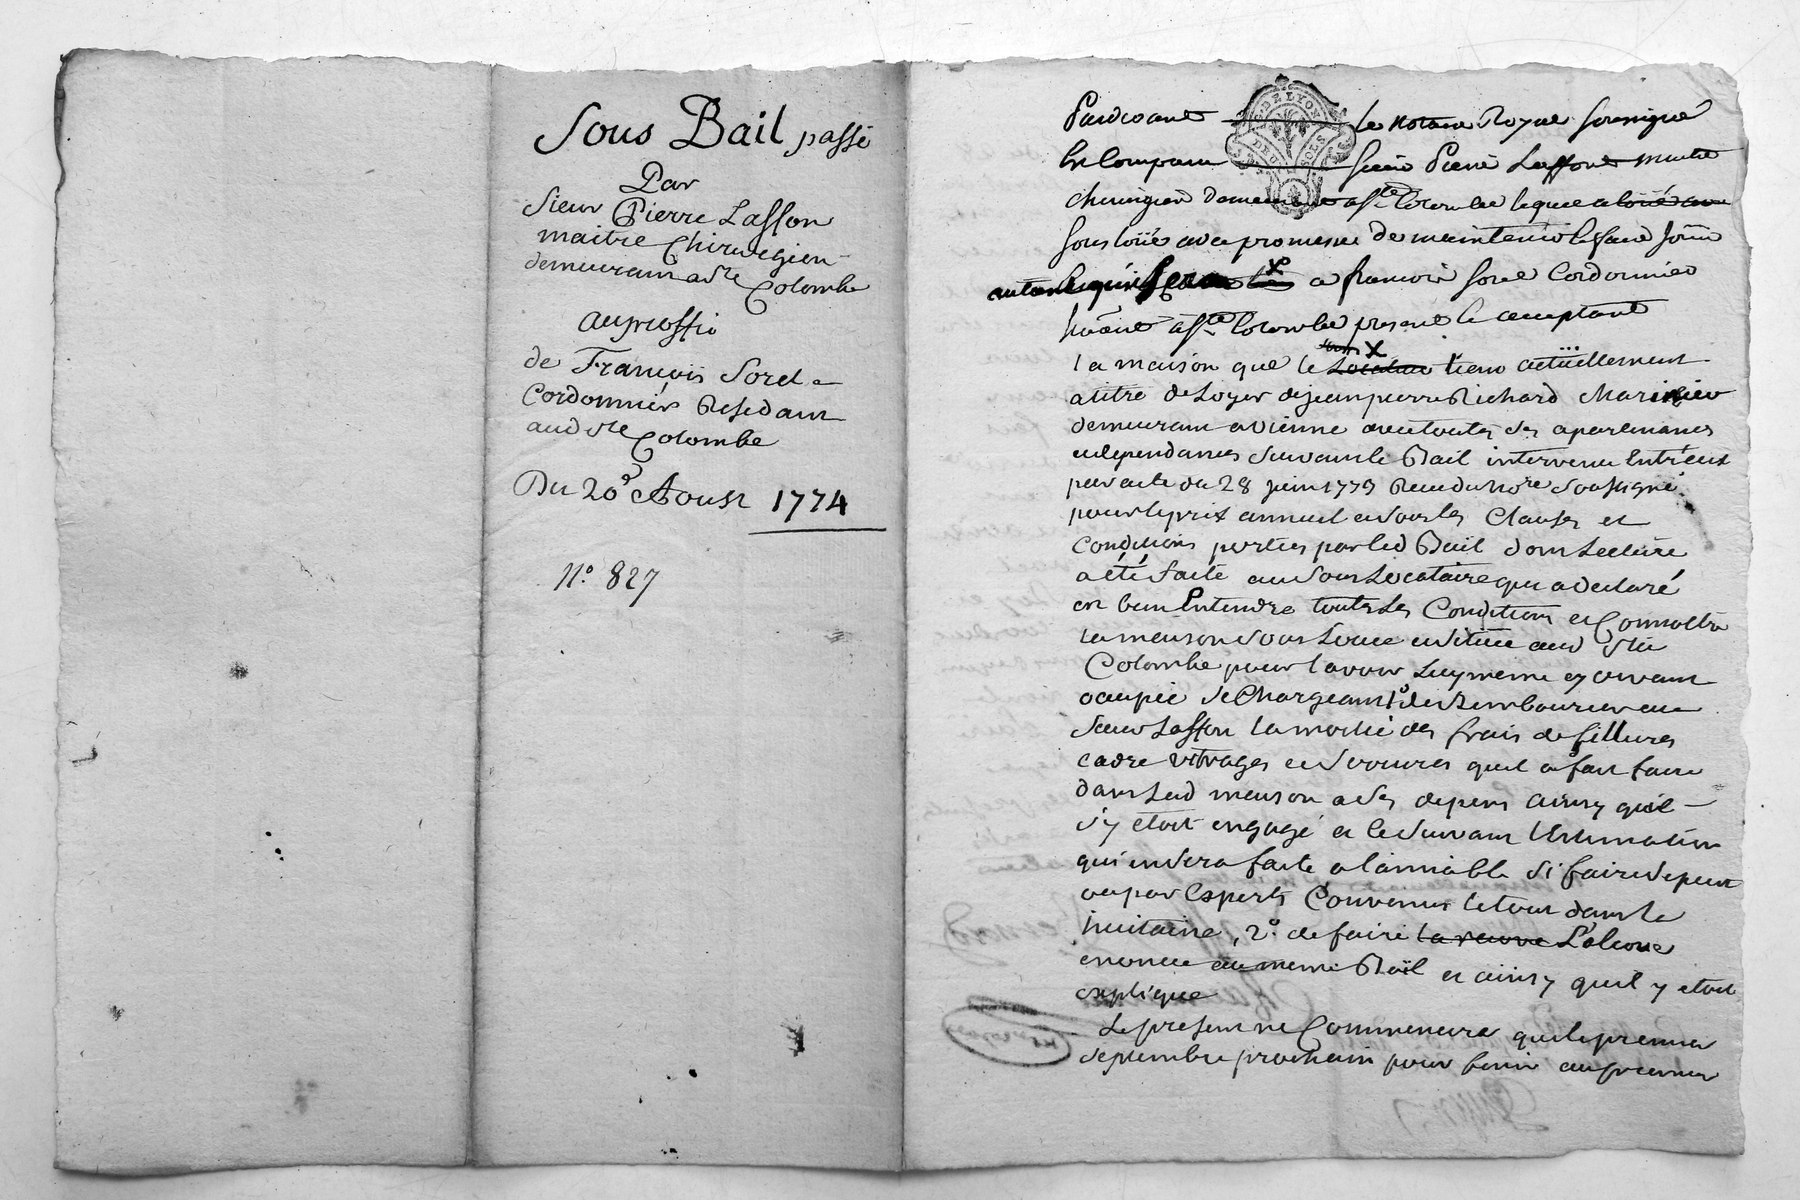 Sous Bail passé
Par
Sieur Pierre Lasson
maitre Chirurgien
demeurant a Ste Colombe
au proffit
de François Sorel
Cordonnier Residant
aud Ste Colombe
Du 20e Aoust 1774
N.o 827
G. DE LYON
DEUX SOLS
Pardevant le Notaire Royal soussigné
fut Comparu sieur Pierre Lassone maitre
chirurgien a Ste Colombe lequel a loüé
sous loüé avec promesse de maintenir et faire joüir
a francois Sorel Cordonnier
a Ste Colombe present et acceptant
la maison que le tient actüellement
a titre de Loyer de jean pierre Richard Marinier
demeurant a vienne avec toutes ses apartenances
et dependances suivant le Bail intervenu Entr'eux
par acte du 28 juin 1773 Receu du No.re Soussigné
pour le prix annuel et sous les Clauses et
Conditions portées par led Bail dont Lecture
a été faite au sous Locataire qui a declaré
en bien Entendre toutes les Conditions et Connoitre
la maison sous Louée et située aud Ste
Colombe pour l'avoir Luy meme cy devant
ocupée se Chargeant 1o de Rembourser au
Sieur Lasson la moitié des frais de
cadre vitrages et serrures quil a fait faire
dans lad maison a ses depens ainsy quil
s'y etoit engagé et le suivant l'Estimation
qui en sera faite a l'amiable si faire se peut
ou par Experts Convenus le tout dans la
huitaine, 2o. de faire
enoncée au meme Bail et ainsy quil y etoit
expliqué
Le present ne Commencera que le premier
septembre prochain pour finir au premier